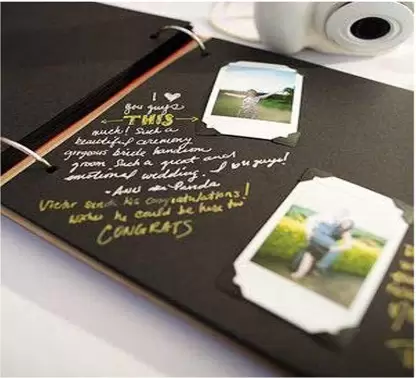 I ♥
you guys
THIS
much! Such a
beautiful ceremony
gorgeous bride handsome
groom Such a great and
emotional wedding. I ♥ u guys!
Victor sends his congratulations!
wishes he could be here too
CONGRATS